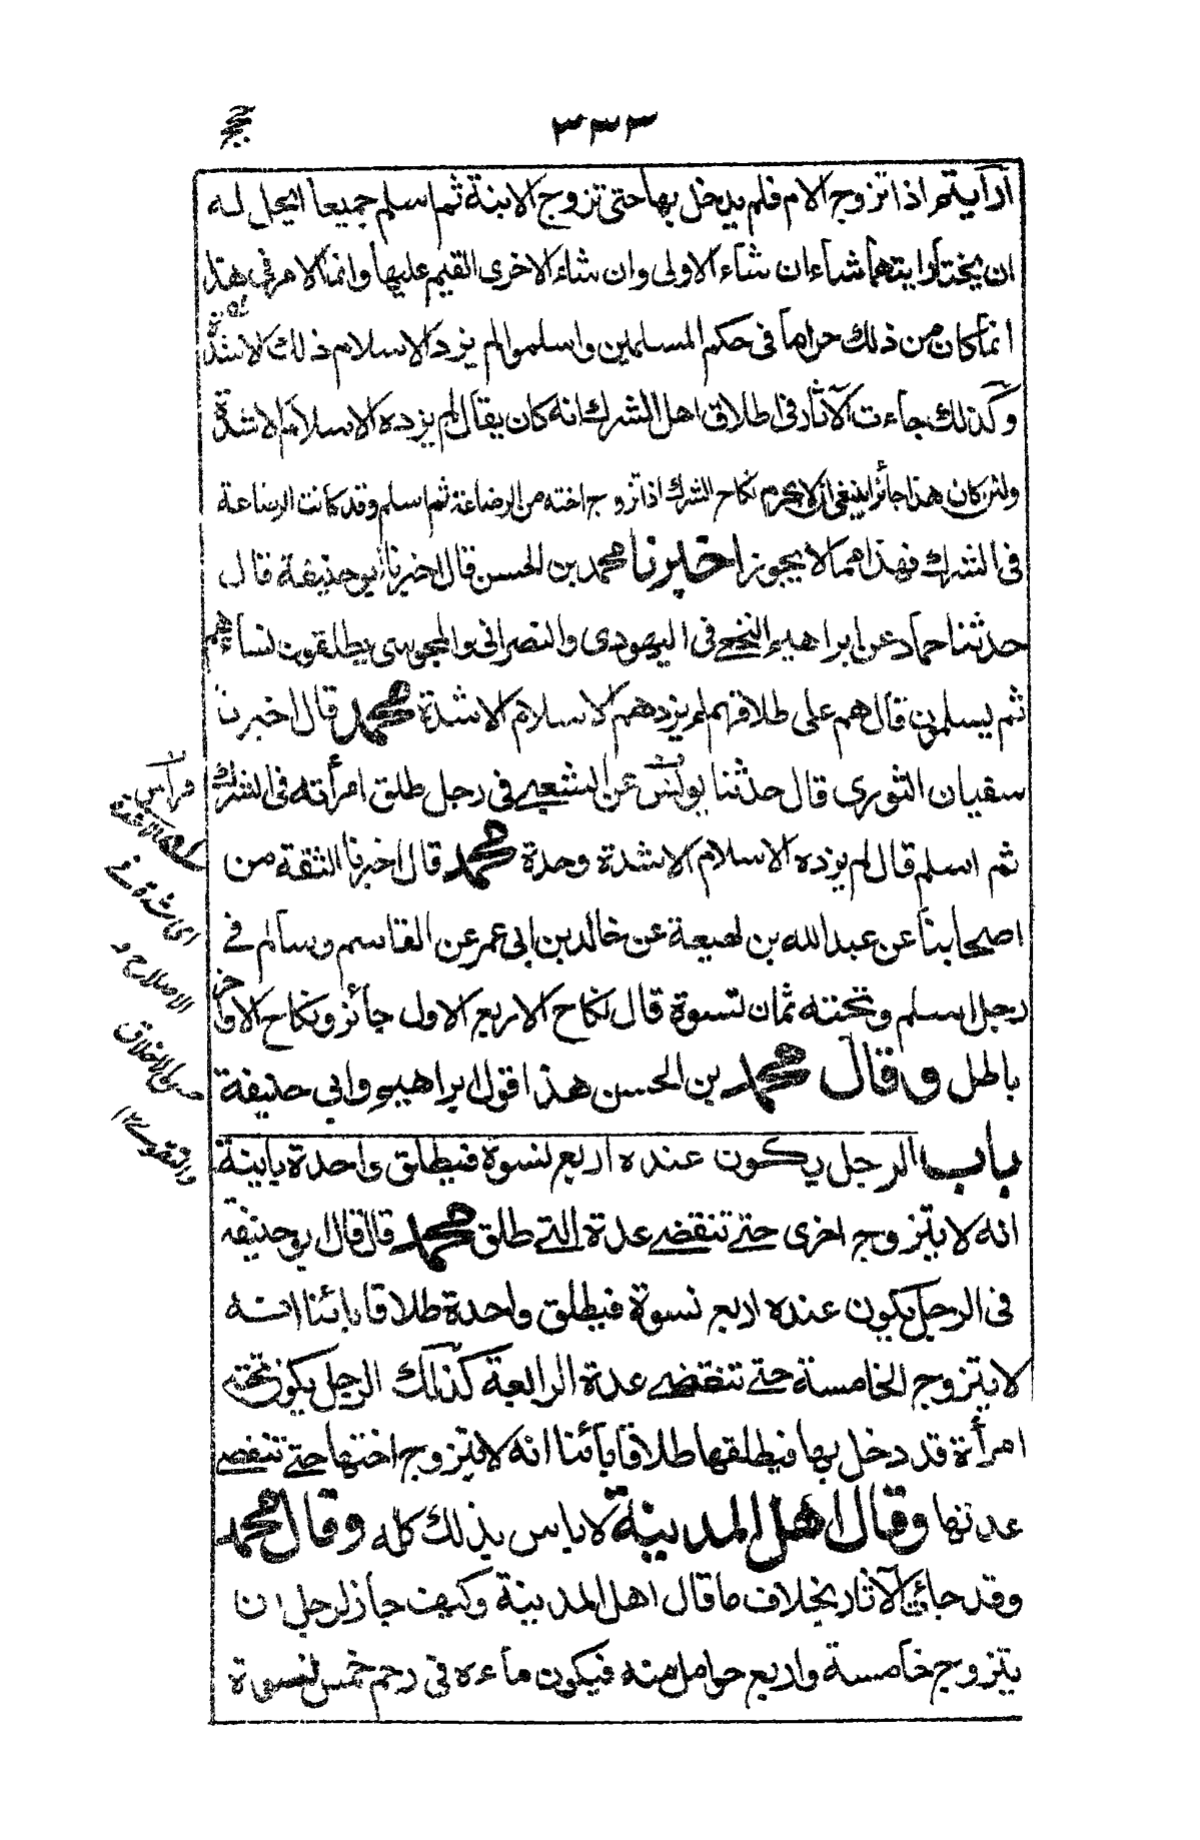 ٣٣٣
أرأيتم اذا تزوج الام فلم يدخل بها حتى تزوج الابنة ثم اسلم جميعا ايحل له
ان يختار ايتهما شاء ان شاء الاولى وان شاء الاخرى القيم عليها وانما الامر فى هذا
انما كان من ذلك حراما فى حكم المسلمين واسلموا لم يزد الاسلام ذلك الا شدة
وكذلك جاءت الآثار فى اطلاق اهل الشرك انه كان يقال لم يزده الاسلام الا شدة
ولئن كان هذا جائزا ينبغى ان لا يحرم نكاح الشرك اذا تزوج اخته من الرضاعة ثم اسلم وقد كانت الرضاعة
فى الشرك فهذا مما لا يجوز اخبرنا محمد بن الحسن قال اخبرنا ابو حنيفة قال
حدثنا حماد عن ابراهيم النخعى فى اليهودى والنصرانى والمجوسى يطلقون نساءهم
ثم يسلمون قال هم على طلاقهم لم يزدهم الاسلام الا شدة محمد قال اخبرنا
سفيان الثورى قال حدثنا يونس عن الشعبى فى رجل طلق امرأته فى الشرك
ثم اسلم قال لم يزده الاسلام الا شدة وحدة محمد قال اخبرنا الثقة من
اصحابنا عن عبد الله بن لهيعة عن خالد بن ابى عمر عن القاسم وسالم فى
رجل اسلم وتحته ثمان نسوة قال نكاح الاربع الاول جائز ونكاح الاواخر
باطل وقال محمد بن الحسن هذا قول ابراهيم وابى حنيفة
باب الرجل يكون عنده اربع نسوة فيطلق واحدة باينة
انه لا يتزوج اخرى حتى تنقضى عدة التى طلق محمد قال قال ابو حنيفة
فى الرجل يكون عنده اربع نسوة فيطلق واحدة طلاقا بائنا انه
لا يتزوج الخامسة حتى تنقضى عدة الرابعة كذلك الرجل يكون تحته
امرأة قد دخل بها فيطلقها طلاقا بائنا انه لا يتزوج اختها حتى تنقضى
عدتها وقال اهل المدينة لا باس بذلك كله وقال محمد
وقد جائت الآثار بخلاف ما قال اهل المدينة وكيف جاز لرجل ان
يتزوج خامسة واربع حوامل منه فيكون ماءه فى رحم خمس نسوة
اى شدة فى
الاصلاح و
الاخلاق
والتقوى ١٢